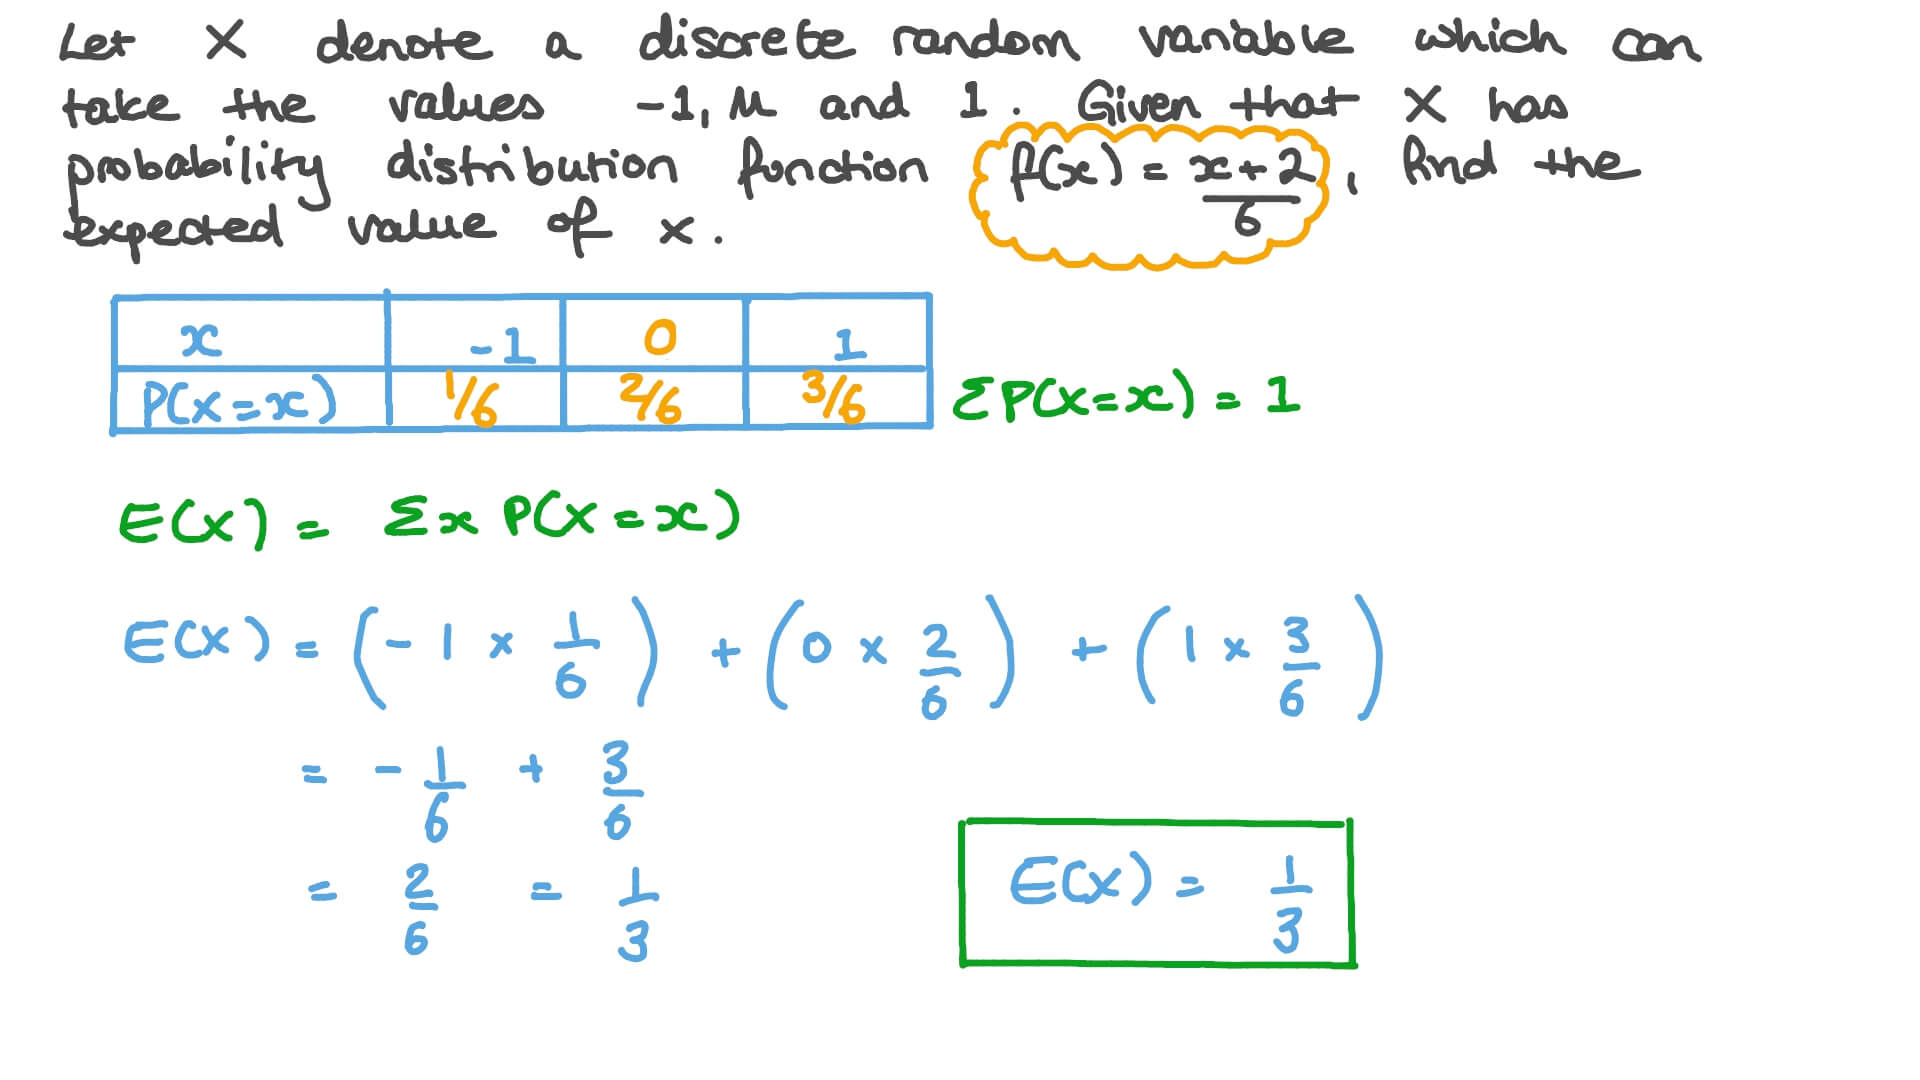 Let X denote a discrete random variable which can
take the values -1, M and 1. Given that X has
probability distribution function f(x) = x+2/6, find the
expected value of x.
x -1 0 1
P(X=x) 1/6 2/6 3/6 ΣP(X=x) = 1
E(X) = Σx P(X=x)
E(X) = (-1 × 1/6) + (0 × 2/6) + (1 × 3/6)
= - 1/6 + 3/6
= 2/6 = 1/3
E(X) = 1/3